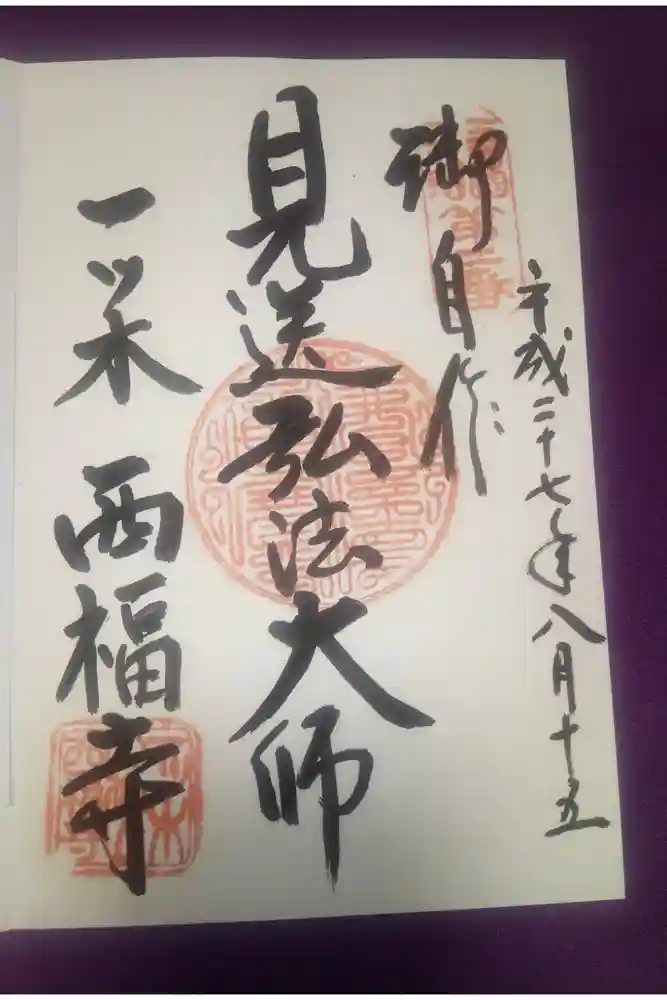 平成二十七年八月十五
御自作
見送弘法大師
一乗 西福寺